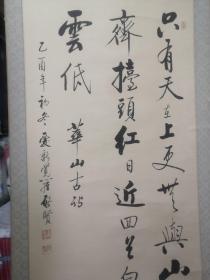 只有天在上更無與山
齊擡頭紅日近回首白
雲低 華山古詩
乙酉年初冬愛新覺羅啟賢